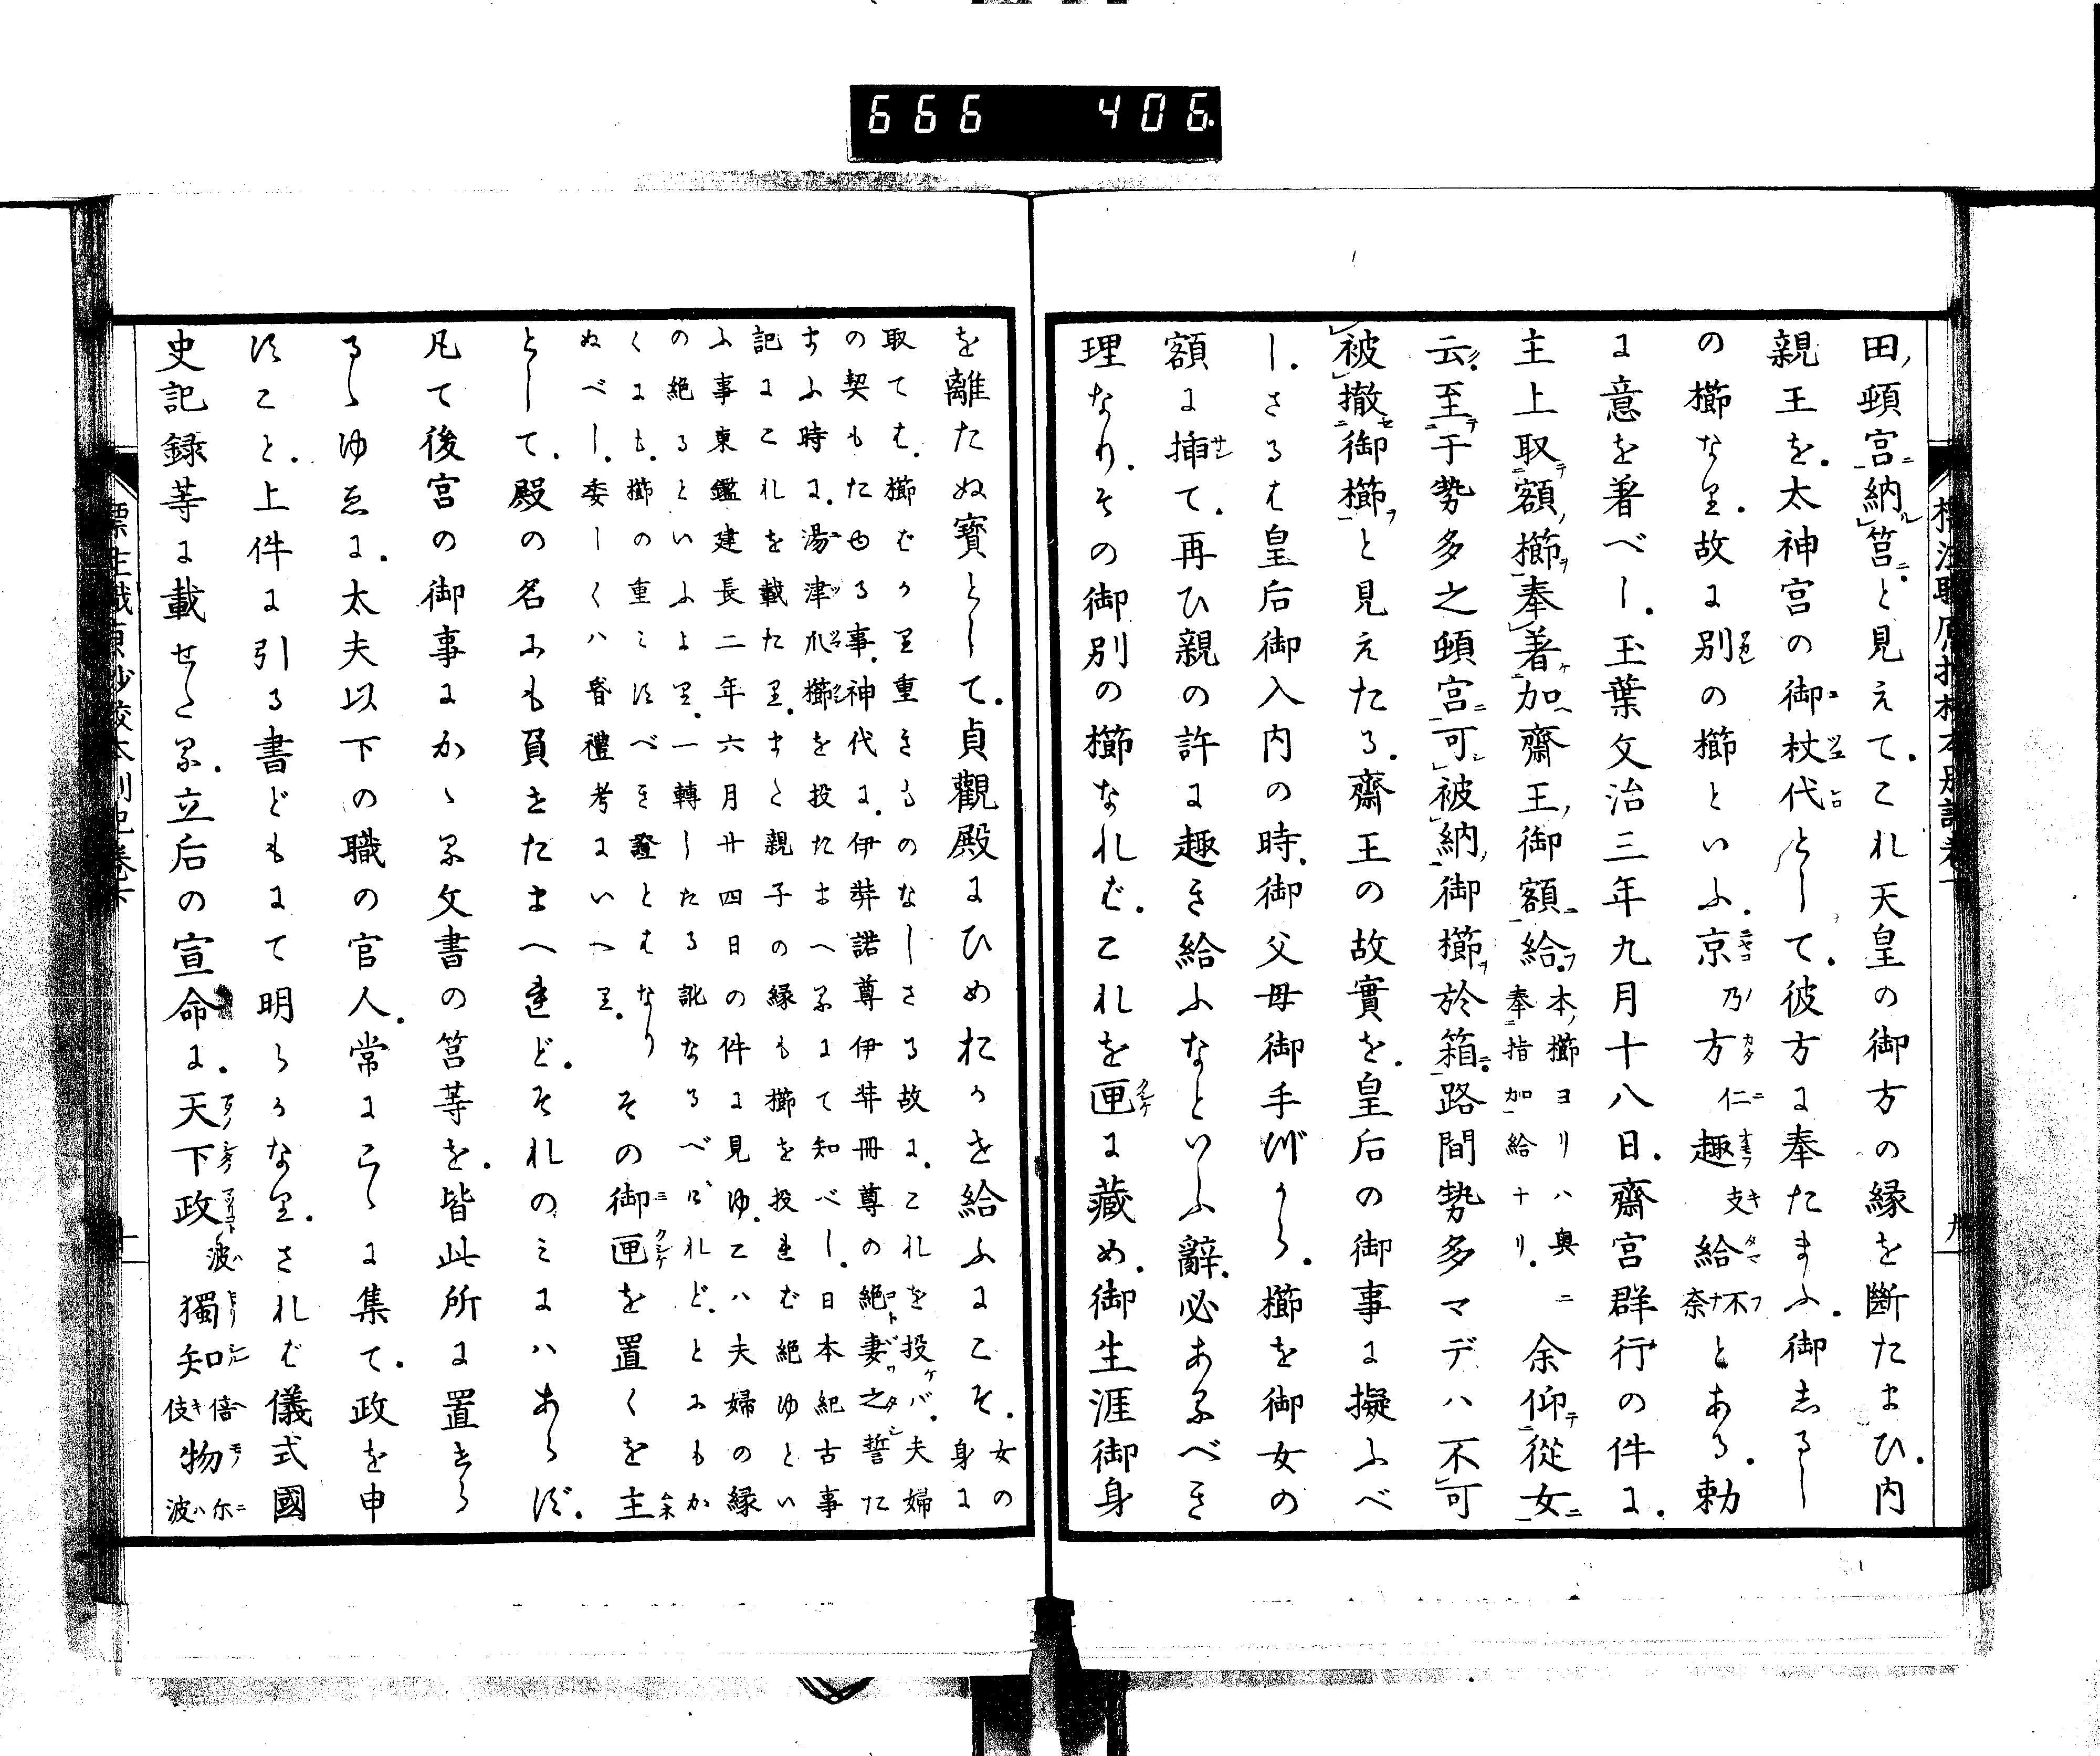 666 406
田頓宮納筥と見えて。これ天皇の御方の縁を斷たまひ。内
親王を。太神宮の御杖代として。彼方に奉たまふ。御志るし
の櫛なり。故に別の櫛といふ。京乃方仁趣支給不奈とある。勅
に意を着べし。玉葉文治三年九月十八日。齋宮群行の件に。
主上取額櫛奉著加齋王御額給。本櫛ヨリハ奥ニ奉指加給ナリ。余仰從女
云。至于勢多之頓宮可被納御櫛於箱。路間勢多マデハ不可
被撤御櫛と見えたる。齋王の故實を。皇后の御事に擬ふべ
し。さるは皇后御入内の時。御父母御手づから。櫛を御女の
額に挿て。再ひ親の許に趣き給ふなといふ辭。必あるべき
理なり。その御別の櫛なれば。これを匣に藏め。御生涯御身
を離たぬ寳として。貞觀殿にひめおかせ給ふにこそ。女の身に
取ては。櫛ばかり重きものなしさる故に。これを投ケバ。夫婦
の契もたゆる事。神代に。伊弉諾尊伊弉冊尊の絶妻之誓た
すふ時に。湯津爪櫛を投たまへるにて知べし。日本紀古事
記にこれを載たり。すと親子の縁も櫛を投れば絶ゆとい
ふ事東鑑建長二年六月廿四日の件に見ゆ。こハ夫婦の縁
の絶るといふより。一轉したる訛なるべけれど。とにもか
くにも。櫛の重みすべきを證とはなり
ぬべし。委しくハ昏禮考にいへり。 その御匣を置くを主
として。殿の名にも負せたまへれど。それのみにハあらず。
凡て後宮の御事にかゝる文書の筥等を。皆此所に置きら
るゝゆゑに。太夫以下の職の官人。常にこゝに集て。政を申
すこと。上件に引る書どもにて明らかなり。されば儀式國
史記録等に載せたる。立后の宣命に。天下政波獨知倍伎物尓波